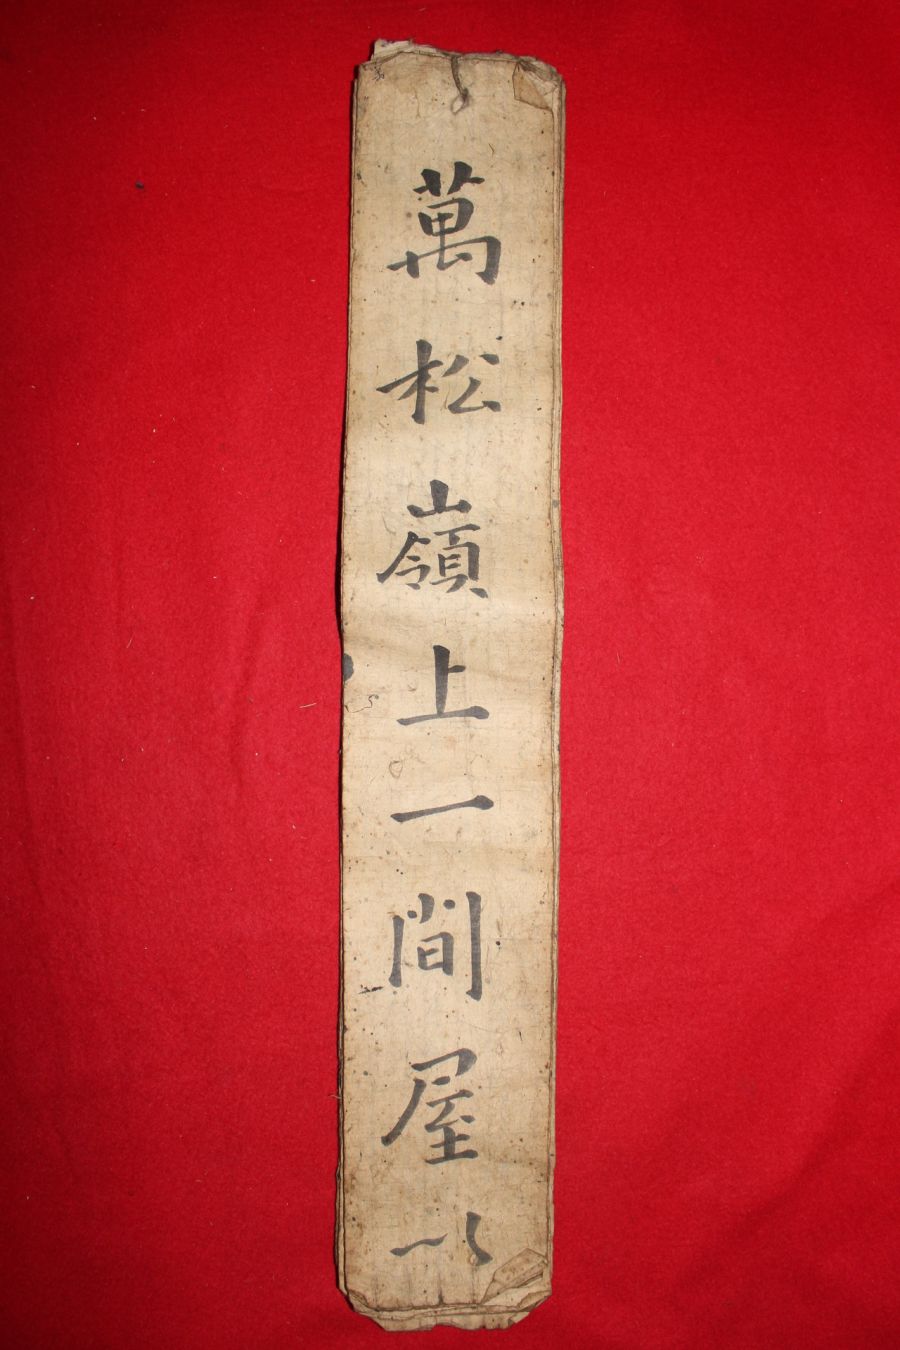 萬松嶺上一間屋